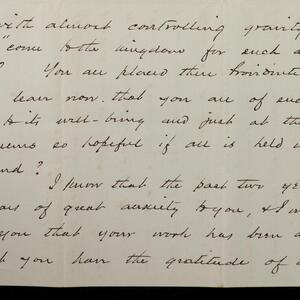 with almost controlling gravity
"come to the kingdom for such a
? You are placed there
learn now that you are of su
to its well-being and just at th
seems so hopeful if all is held
nd?
I know that the past two ye
ars of great anxiety to you, & I
you that your work has been a
you have the gratitude of